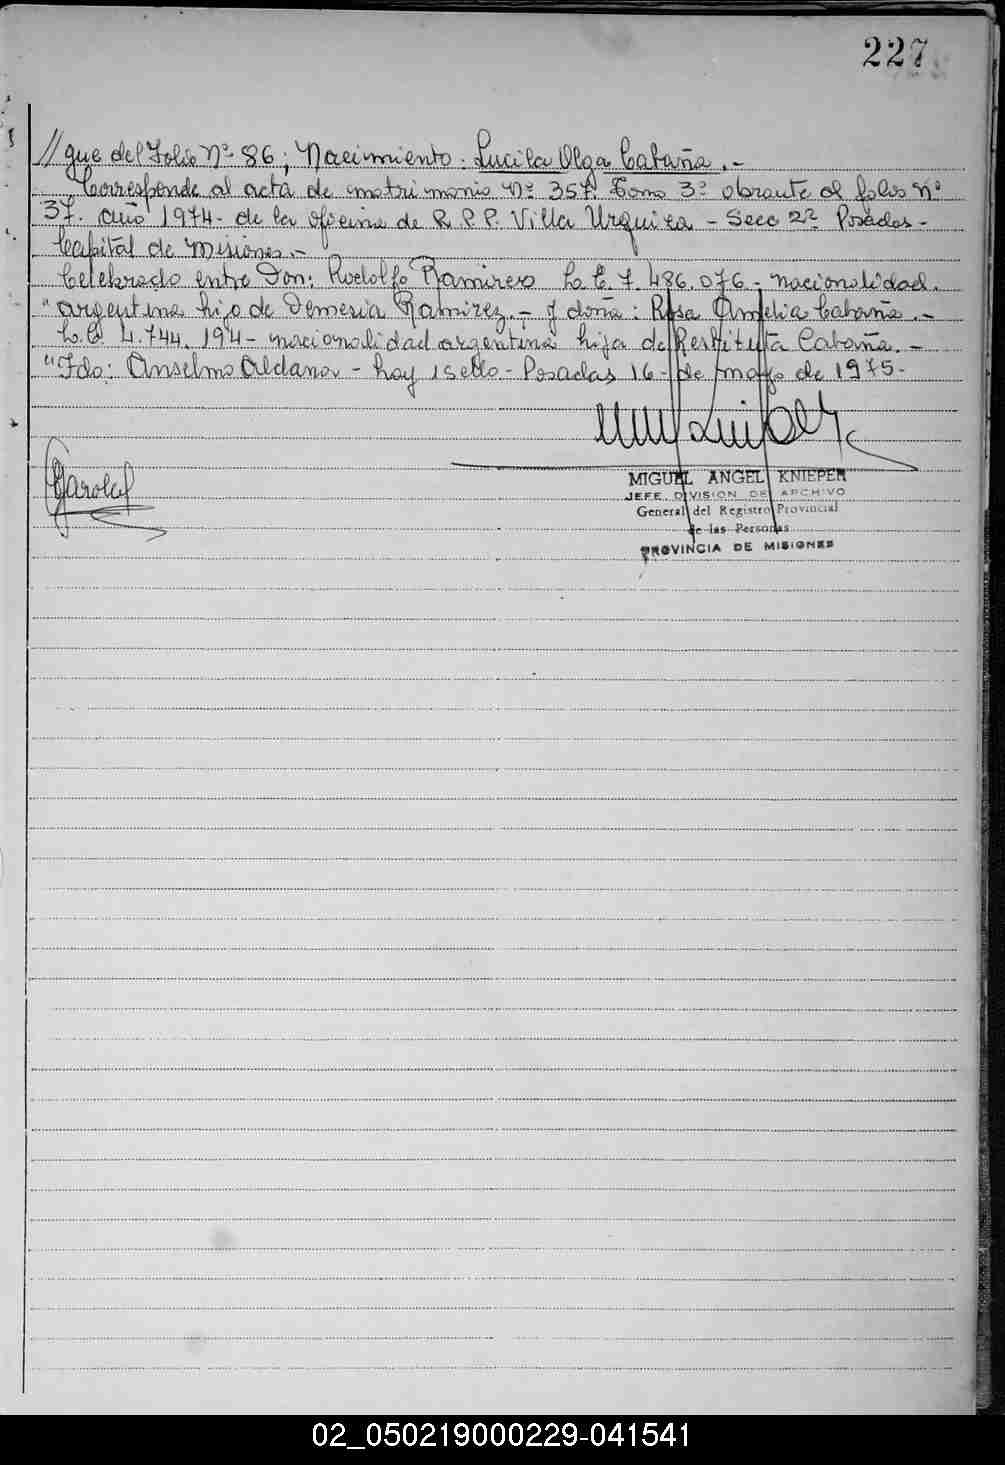 227
// gue del Folio Nº 86; Nacimiento: Lucila Olga Cabaña.-
Corresponde al acta de matrimonio Nº 357. Tomo 3º obrante al folio nº
37. año 1974- de la oficina de R.P.P. Villa Urquiza - Secc 2ª Posadas -
Capital de Misiones.-
Celebrado entre Don: Rodolfo Ramirez L.E. 7.486.076.- nacionalidad.
"argentina hijo de Demesia Ramirez.- y doña: Rosa Amelia Cabaña.-
L.C 4.744.194- nacionalidad argentina hija de Restituta Cabaña.-
"Fdo: Anselmo Aldana - hay 1 sello - Posadas 16- de mayo de 1975-
MIGUEL ANGEL KNIEPER
JEFE DIVISION DE ARCHIVO
General del Registro Provincial
de las Personas
PROVINCIA DE MISIONES
02_050219000229-041541